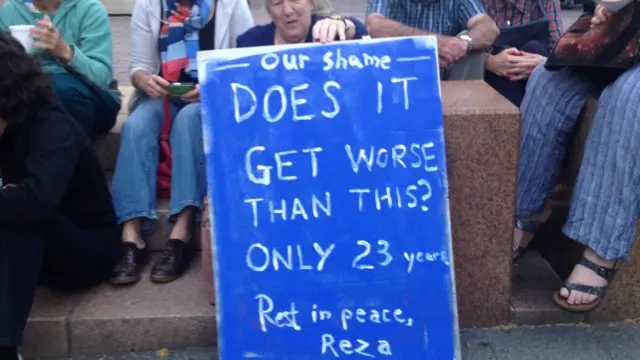 — Our shame —
DOES IT
GET WORSE
THAN THIS?
ONLY 23 years
Rest in peace,
Reza